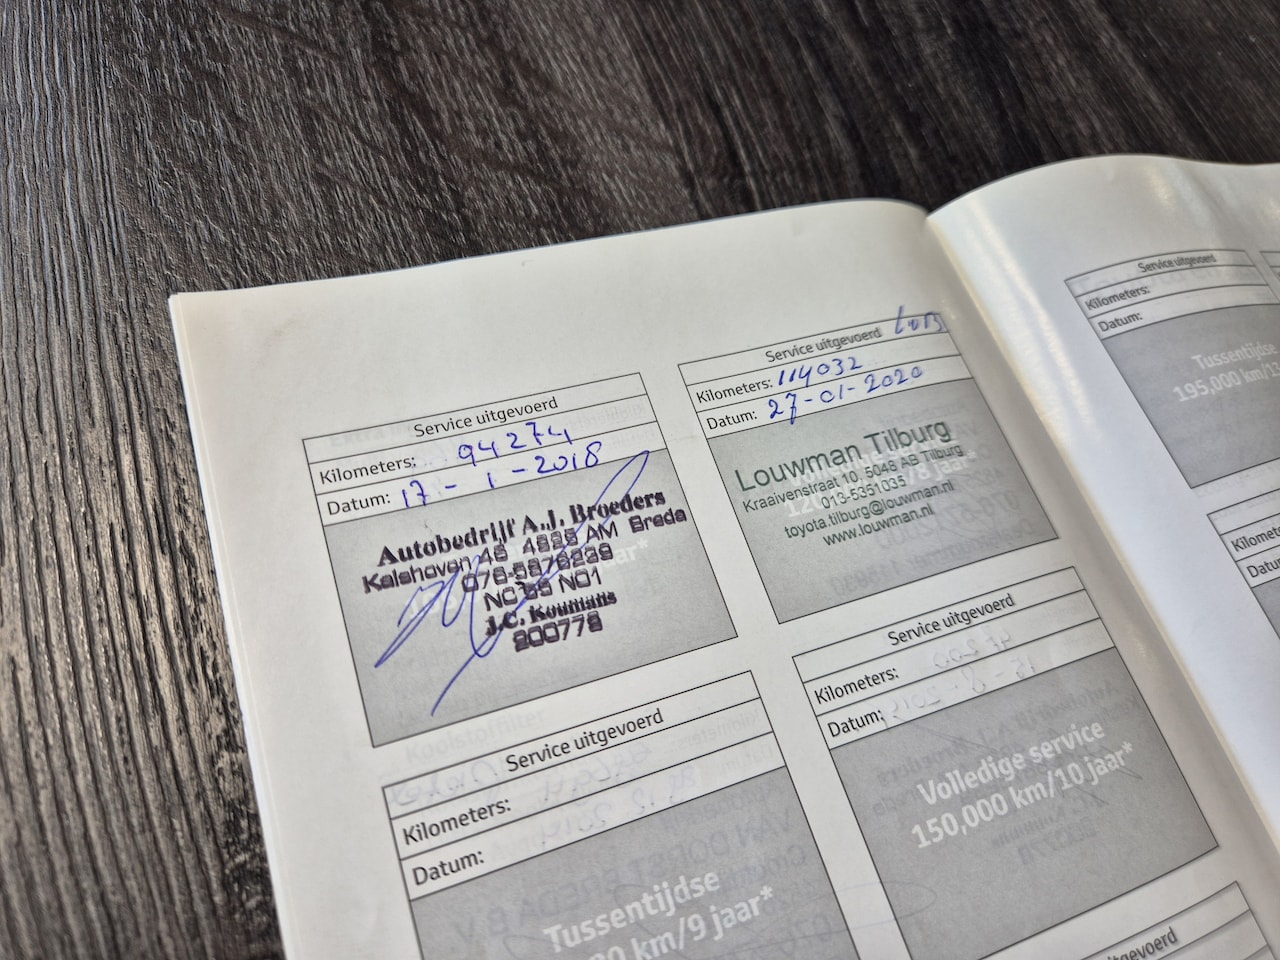 Service uitgevoerd
Kilometers: 94274
Datum: 17-1-2018
Autobedrijf A.J. Broeders
Kalshoven 46 4825 AM Breda
076-5876239
J.C. Koumans
200778
Service uitgevoerd
Kilometers: 114032
Datum: 27-01-2020
Louwman Tilburg
Kraaivenstraat 10, 5048 AB Tilburg
013-5351035
toyota.tilburg@louwman.nl
www.louwman.nl
Service uitgevoerd
Kilometers:
Datum:
Tussentijdse
km/9 jaar*
Service uitgevoerd
Kilometers:
Datum:
Volledige service
150,000 km/10 jaar*
uitgevoerd
Service uitgevoerd
Kilometers:
Datum:
Tussentijdse
195,000